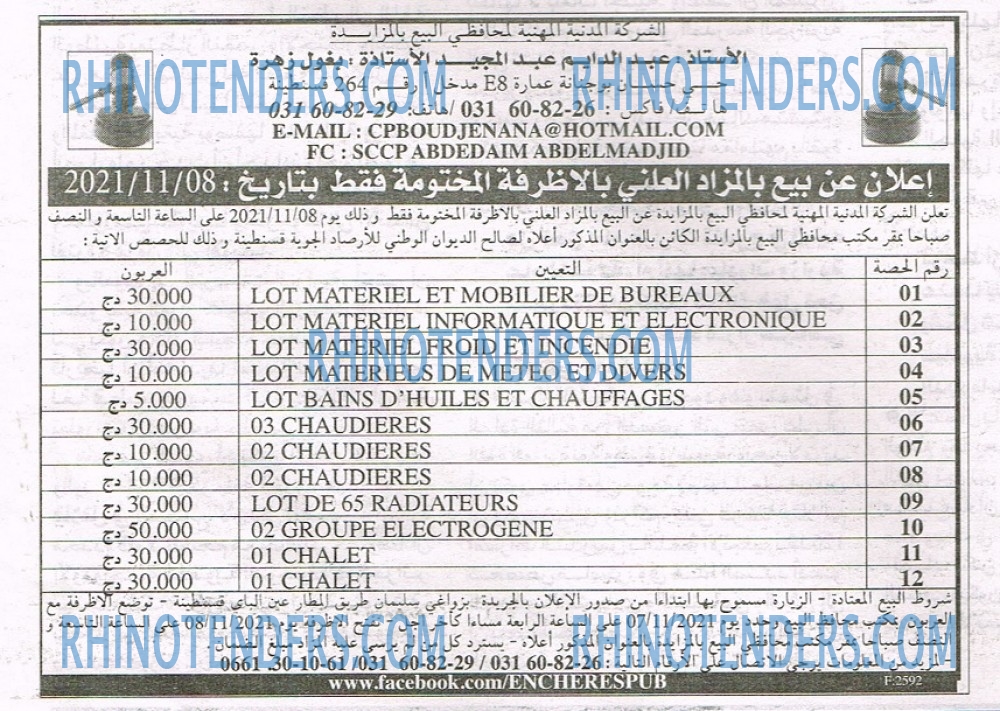 الشركة المدنية المهنية لمحافظي البيع بالمزايدة
الأستاذ: عبد الدايم عبد المجيد الأستاذة: بغول زهرة
حي حسان بوجنانة عمارة E8 مدخل أ رقم 264 قسنطينة
هاتف فاكس: 26-82-60 031 /هاتف: 29-82-60 031
E-MAIL : CPBOUDJENANA@HOTMAIL.COM
FC : SCCP ABDEDAIM ABDELMADJID
RHINOTENDERS.COM RHINOTENDERS.COM
إعلان عن بيع بالمزاد العلني بالاظرفة المختومة فقط بتاريخ : 2021/11/08
تعلن الشركة المدنية المهنية لمحافظي البيع بالمزايدة عن البيع بالمزاد العلني بالاظرفة المختومة فقط و ذلك يوم 2021/11/08 على الساعة التاسعة و النصف
صباحا بمقر مكتب محافظي البيع بالمزايدة الكائن بالعنوان المذكور أعلاه لصالح الديوان الوطني للأرصاد الجوية قسنطينة و ذلك للحصص الاتية :
رقم الحصة التعيين العربون
01 LOT MATERIEL ET MOBILIER DE BUREAUX 30.000 دج
02 LOT MATERIEL INFORMATIQUE ET ELECTRONIQUE 10.000 دج
03 LOT MATERIEL FROID ET INCENDIE 30.000 دج
RHINOTENDERS.COM
04 LOT MATERIELS DE METEO ET DIVERS 10.000 دج
05 LOT BAINS D'HUILES ET CHAUFFAGES 5.000 دج
06 03 CHAUDIERES 30.000 دج
07 02 CHAUDIERES 10.000 دج
08 02 CHAUDIERES 10.000 دج
09 LOT DE 65 RADIATEURS 30.000 دج
10 02 GROUPE ELECTROGENE 50.000 دج
11 01 CHALET 30.000 دج
12 01 CHALET 30.000 دج
شروط البيع المعتادة - الزيارة مسموح بها ابتداءا من صدور الإعلان بالجريدة بزواغي سليمان طريق المطار عين الباي قسنطينة - توضع الاظرفة مع
العربون بمكتب محافظ البيع وحدد يوم 07/11/2021 على الساعة الرابعة مساءا كآخر أجل - تفتح الاظرفة يوم 08/11/2021 على الساعة التاسعة و
النصف صباحا بمقر مكتب محافظي البيع بالمزايدة بالعنوان المذكور أعلاه - يسترد كل من لم يرسى عليه المزاد مبلغ الضمان.
RHINOTENDERS.COM RHINOTENDERS.COM
- لمزيد من المعلومات يرجى الاتصال على الأرقام التالية: 26-82-60 031 / 29-82-60 031 / 61-10-30-0661
www.facebook.com/ENCHERESPUB F:2592